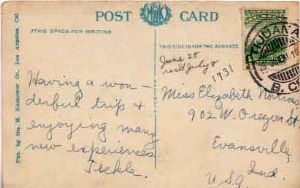 POST CARD
THIS SPACE FOR WRITING
THIS SIDE IS FOR THE ADDRESS
Pub. by the M. Kashower Co., Los Angeles, Cal.
TIJUANA
B. C.
June 28
rec'd July 8
1931
Having a won-
derful trip &
enjoying many
new experiences.
Tekla.
Miss Elizabeth
902 W. Oregon St
Evansville,
Ind.
U.S.A.